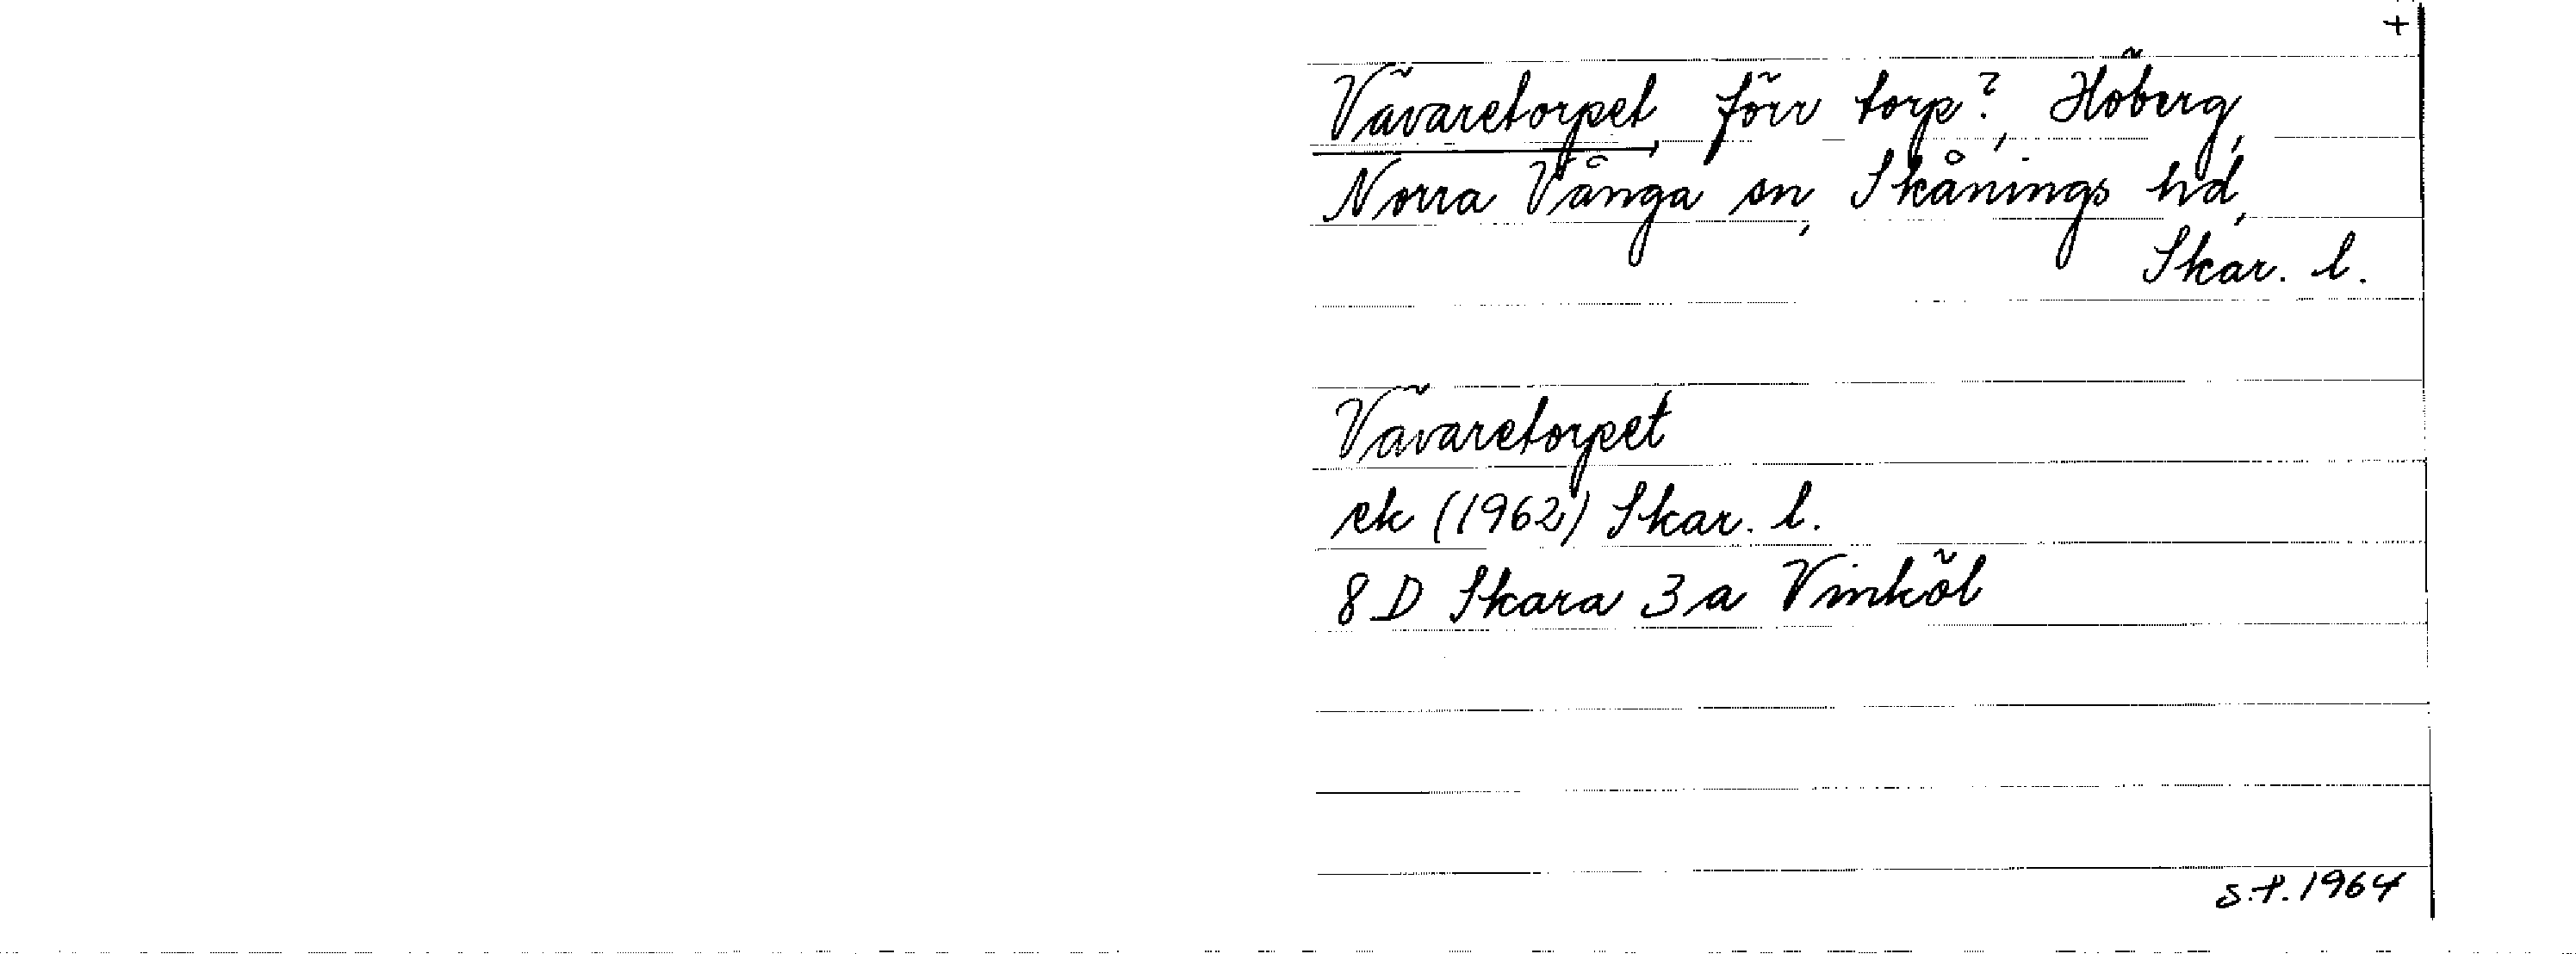 +
Vävaretorpet, förr torp?, Höberg,
Norra Vånga sn, Skånings hd,
Skar. l.
Vävaretorpet
ek (1962) Skar. l.
8 D Skara 3 a Vinköl
S.P. 1964